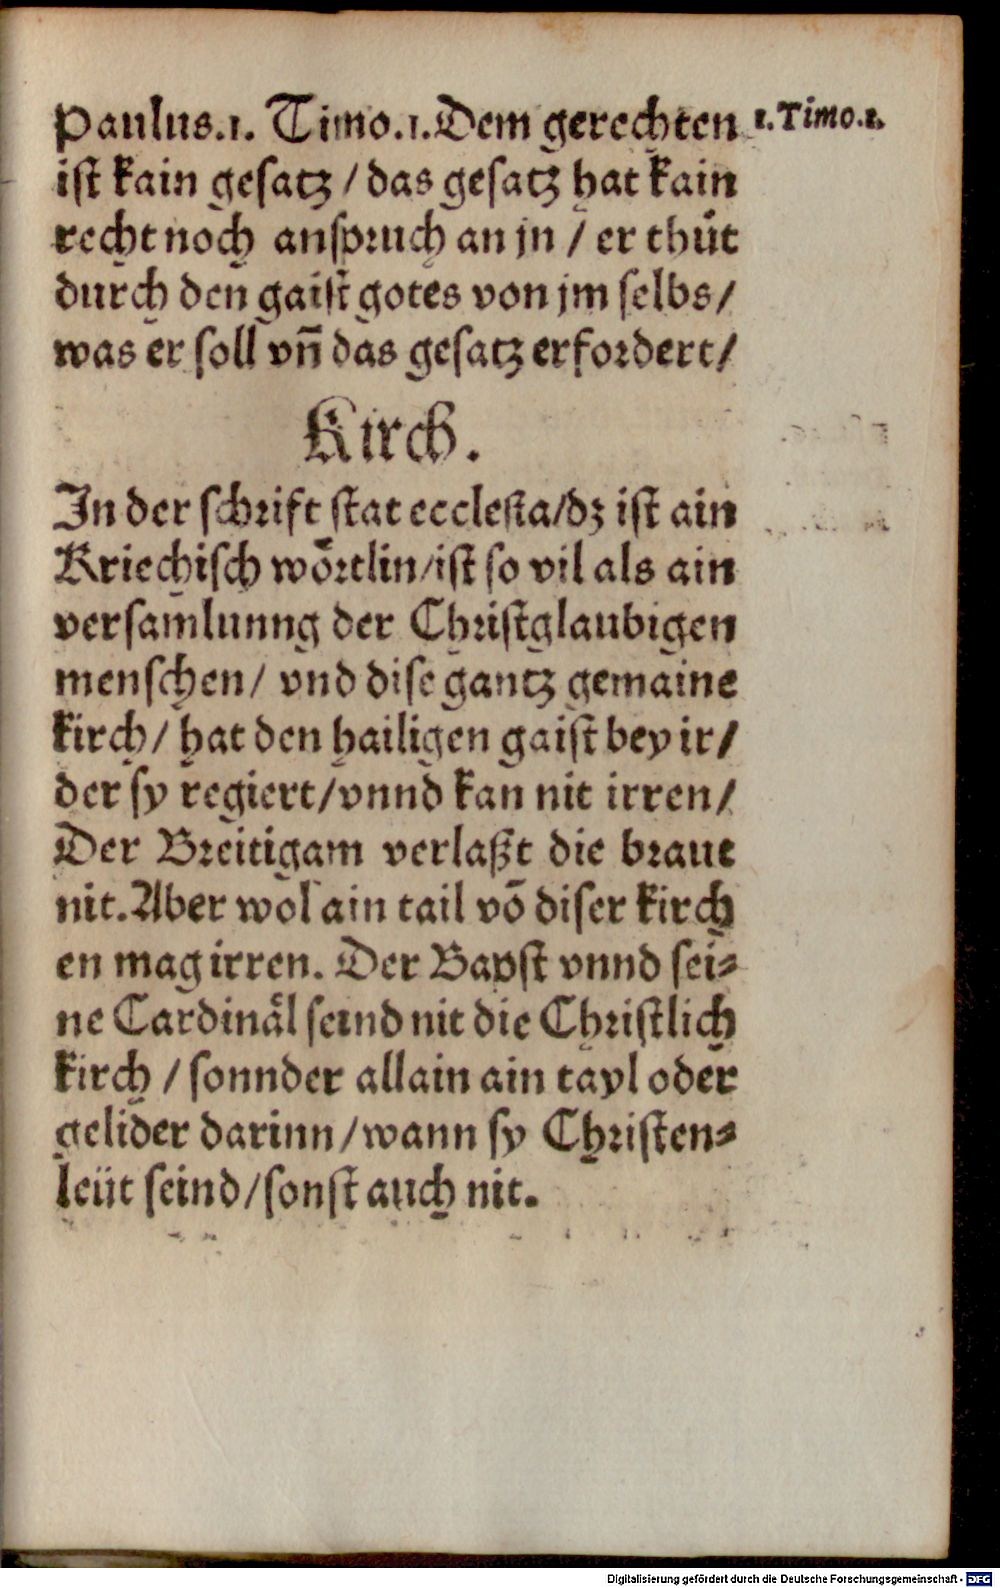 Paulus.1. Timo.1. Dem gerechten
1.Timo.1.
ist kain gesatz / das gesatz hat kain
recht noch anspruch an jn / er thůt
durch den gaist gotes von jm selbs /
was er soll vñ das gesatz erfordert /
Kirch.
In der schrift stat ecclesia / dz ist ain
Kriechisch wörtlin / ist so vil als ain
versamlunng der Christglaubigen
menschen / vnd dise gantz gemaine
kirch / hat den hailigen gaist bey ir /
der sy regiert / vnnd kan nit irren /
Der Breitigam verlaßt die braut
nit. Aber wol ain tail võ diser kirch
en mag irren. Der Bapst vnnd sei⸗
ne Cardinäl seind nit die Christlich
kirch / sonnder allain ain tayl oder
gelider darinn / wann sy Christen⸗
leüt seind / sonst auch nit.
Digitalisierung gefördert durch die Deutsche Forschungsgemeinschaft - DFG